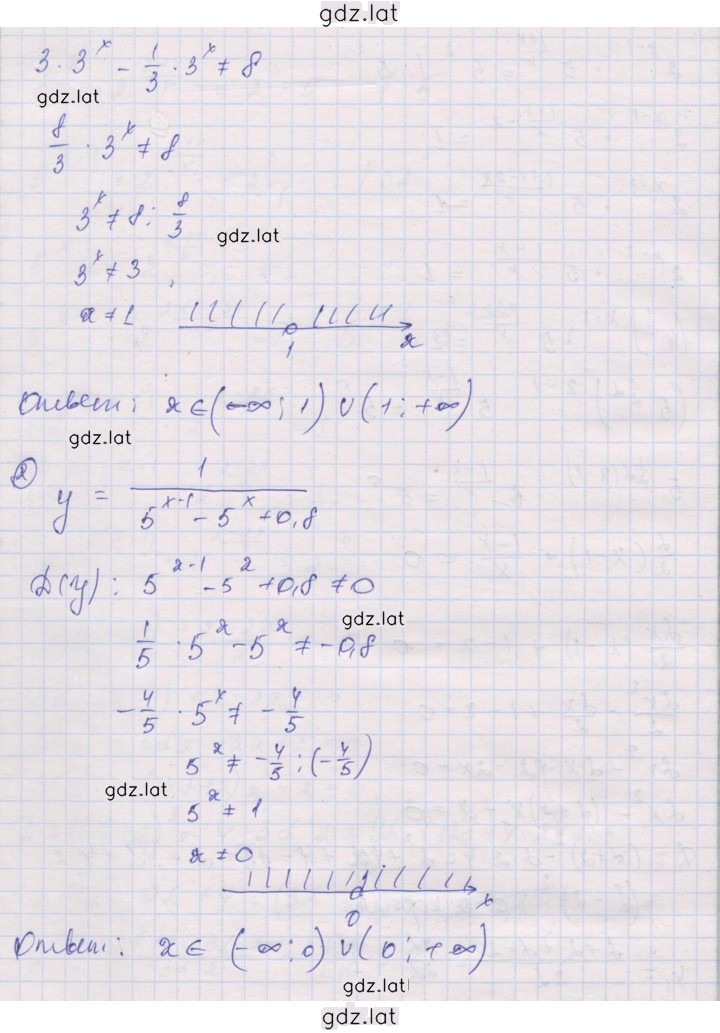 gdz.lat
3 · 3^x - 1/3 · 3^x ≠ 8
gdz.lat
8/3 · 3^x ≠ 8
3^x ≠ 8 : 8/3
gdz.lat
3^x ≠ 3
x ≠ 1
1 x
Ответ: x ∈ (-∞; 1) ∪ (1; +∞)
gdz.lat
2) y = 1/(5^(x-1) - 5^x + 0,8)
D(y): 5^(x-1) - 5^x + 0,8 ≠ 0
gdz.lat
1/5 · 5^x - 5^x ≠ -0,8
-4/5 · 5^x ≠ -4/5
5^x ≠ -4/5 : (-4/5)
gdz.lat
5^x ≠ 1
x ≠ 0
0 x
Ответ: x ∈ (-∞; 0) ∪ (0; +∞)
gdz.lat
gdz.lat